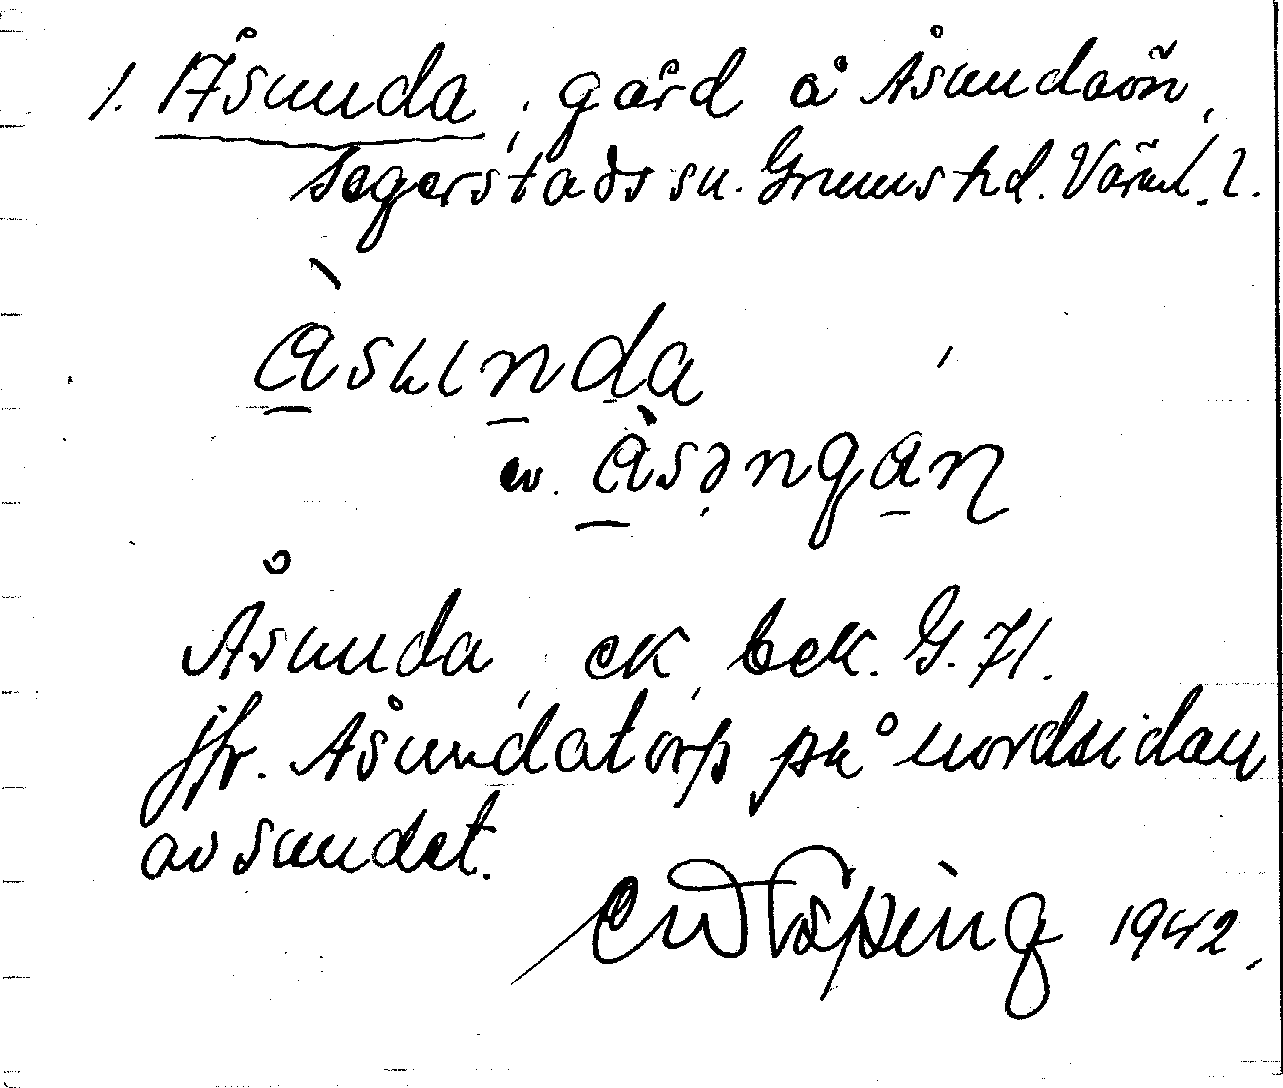 1. Åsunda, gård å Åsundaön,
Segerstads sn. Grums hd. Värml. l.
åsunda
av. åsəngan
Åsunda, ek, bek. G. 71.
jfr. Åsundatorp på nordsidan
av sundet.
1942.